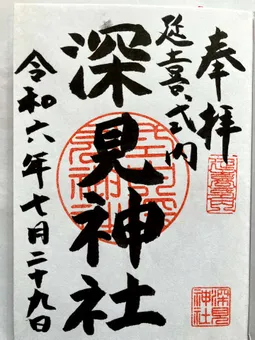 奉拝
延喜式内
深見神社
令和六年七月二十九日
深見
神社